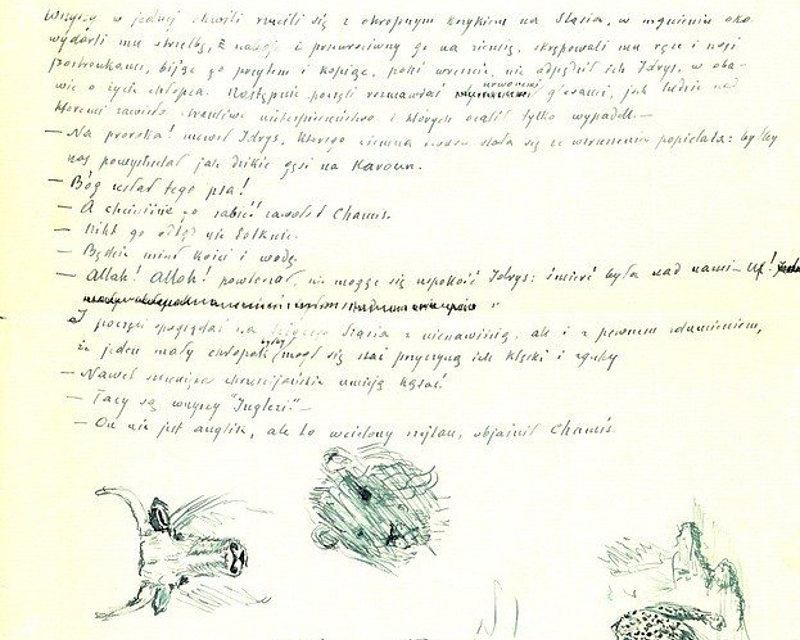 Wszyscy w jednej chwili rzucili się z okropnym krzykiem na Stasia, w mgnieniu oka
wydarli mu strzelbę, i przewróciwszy go na ziemię, skrępowali mu ręce i nogi
postronkami, bijąc go przytem i kopiąc, póki wreszcie nie odpędził ich Idrys, w oba-
wie o życie chłopca. Następnie poczęli rozmawiać urwanemi głosami, jak ludzie nad
któremi zawisło straszliwe niebezpieczeństwo i których ocalił tylko wypadek. —
— Na proroka! Idrys, którego twarz stała się ze wzruszenia popielata: byłby
nas powystrzelał jak dzikie gęsi na Karoun.
— Bóg zesłał tego psa!
— A chcieliście go zabić! zawołał Chamis.
— Nikt go odtąd nie dotknie.
— Będzie miał kości i wodę.
— Allah! Allah! powtarzał, nie mogąc się uspokoić Idrys: śmierć była nad nami — Uf!
I poczęli spoglądać na Stasia z nienawiścią, ale i z pewnem zdumieniem,
że jeden mały chłopak mógł się stać przyczyną ich klęski i zguby
— Nawet chrześcijańskie umieją kąsać!
— Tacy są wszyscy "Inglezi" —
— On nie jest anglik, ale to wcielony szejtan, objaśnił Chamis